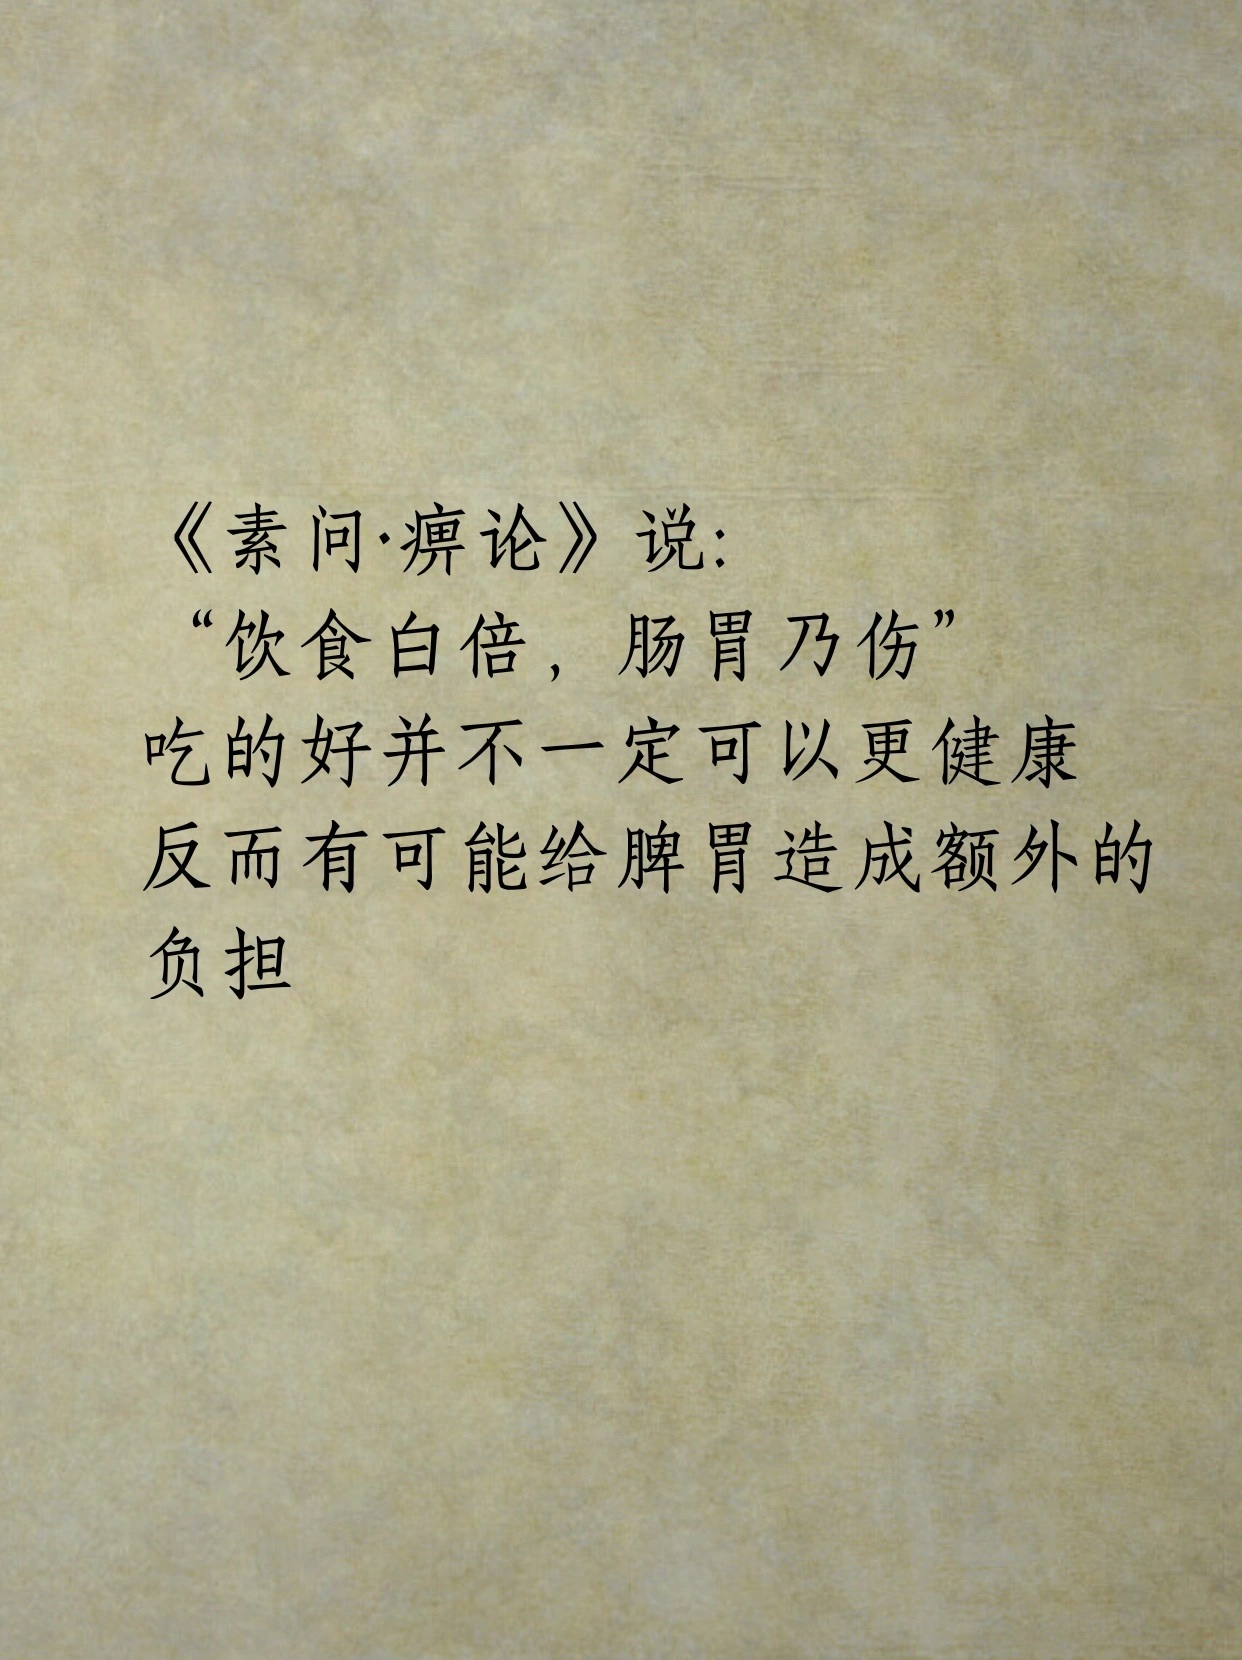 《素问·痹论》说：
“饮食白倍，肠胃乃伤”
吃的好并不一定可以更健康
反而有可能给脾胃造成额外的
负担